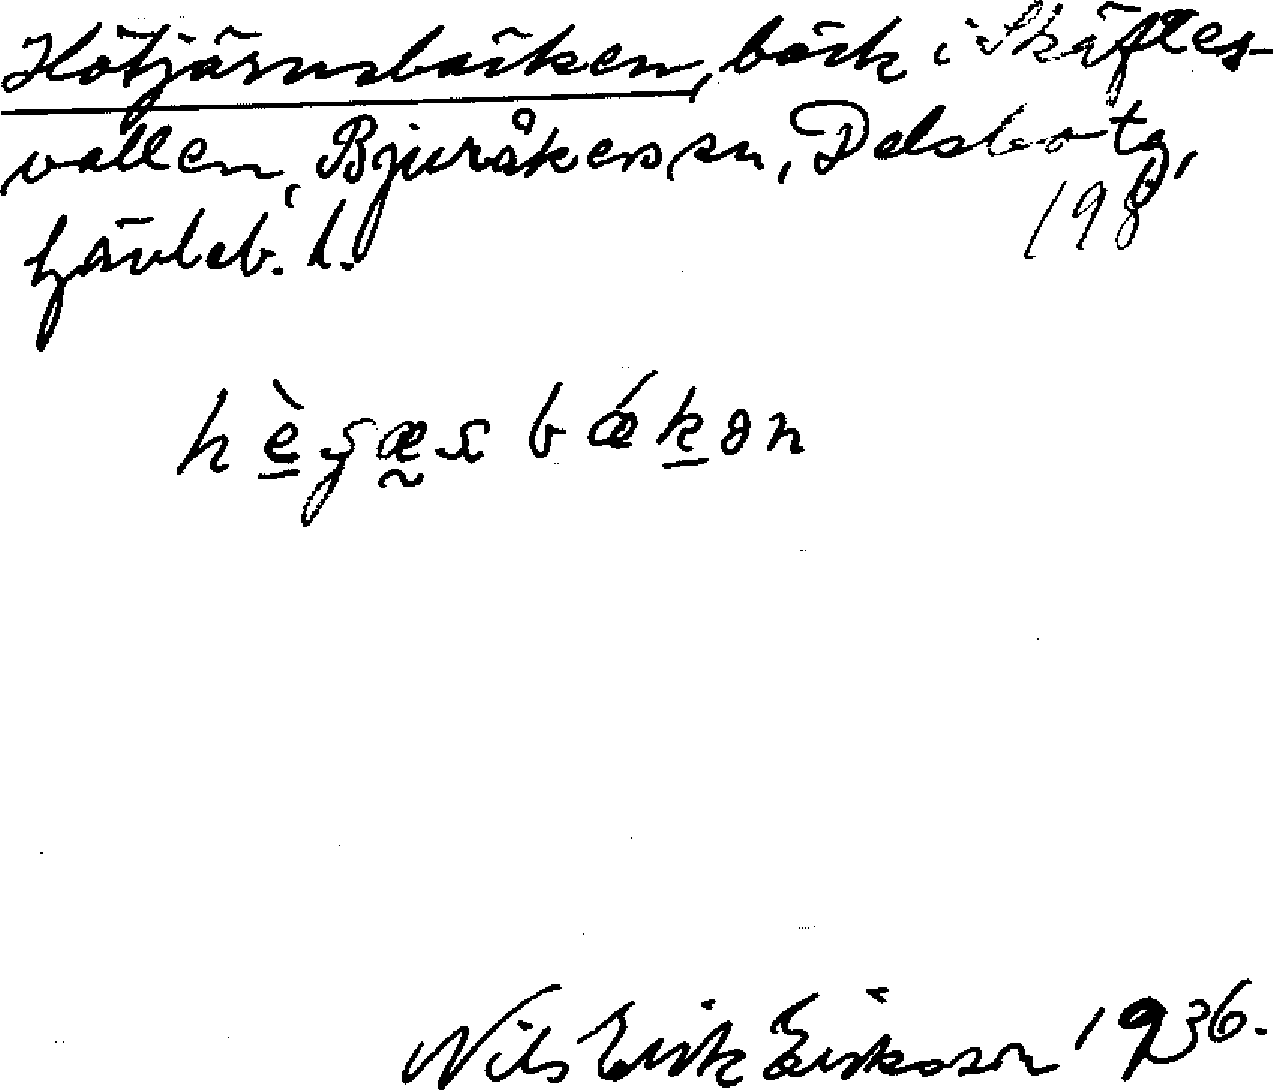 Hötjärnsbäcken, bäck i Skäftes-
vallen, Bjuråkers sn, Delsbo tg,
Gävleb. l. 198
Nils Erik Eriksson 1936.